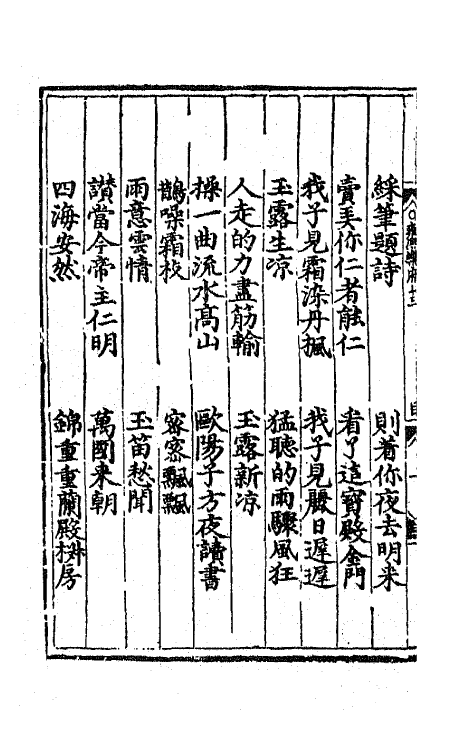 綵筆題詩
則着你夜去明来
賣美你仁者能仁
看了這寶殿金門
我子見霜染丹楓
我子見麗日遲遲
玉露生凉
猛聽的雨驟風狂
人走的力盡筋輸
玉露新凉
操一曲流水高山
歐陽子方夜讀書
鵲噪霜枝
密密飄飄
雨意雲情
玉笛愁聞
讃當今帝主仁明
萬國来朝
四海安然
錦重重蘭殿椒房